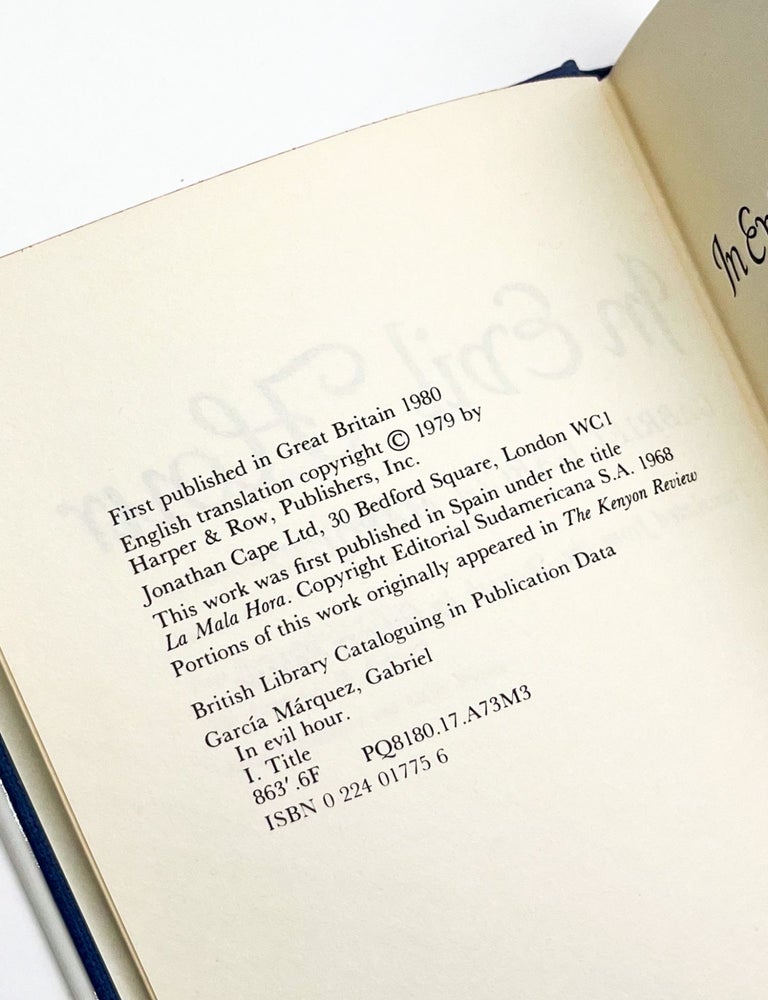 First published in Great Britain 1980
English translation copyright © 1979 by
Harper & Row, Publishers, Inc.
Jonathan Cape Ltd, 30 Bedford Square, London WC1
This work was first published in Spain under the title
La Mala Hora. Copyright Editorial Sudamericana S.A. 1968
Portions of this work originally appeared in The Kenyon Review
British Library Cataloguing in Publication Data
García Márquez, Gabriel
In evil hour.
I. Title
863'.6F PQ8180.17.A73M3
ISBN 0 224 01775 6
In